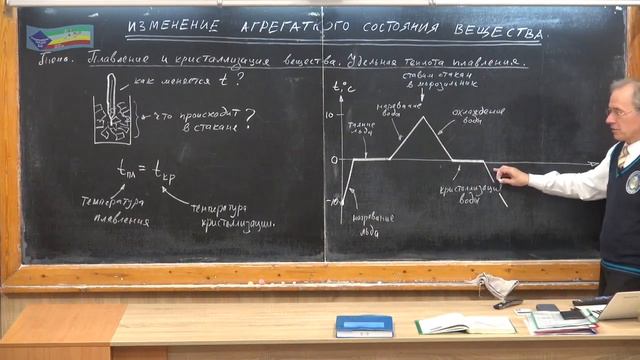 ИЗМЕНЕНИЕ АГРЕГАТНОГО СОСТОЯНИЯ ВЕЩЕСТВА.
Тема. Плавление и кристаллизация вещества. Удельная теплота плавления.
как меняется t?
что происходит
в стакане?
tпл = tкр
температура
плавления
температура
кристаллизации.
ставим стакан
в морозильник
t,°C
10
0
-10
нагревание
льда
таяние
льда
нагревание
воды
охлаждение
воды
кристаллизация
воды